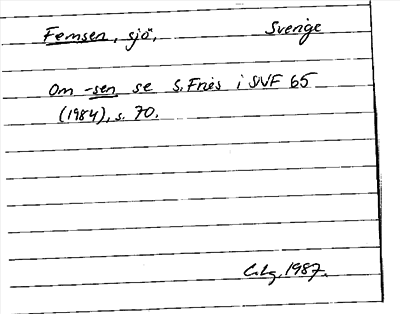 Femsen, sjö, Sverige
Om -sen se S. Fries i SNF 65
(1984), s. 70.
1987.